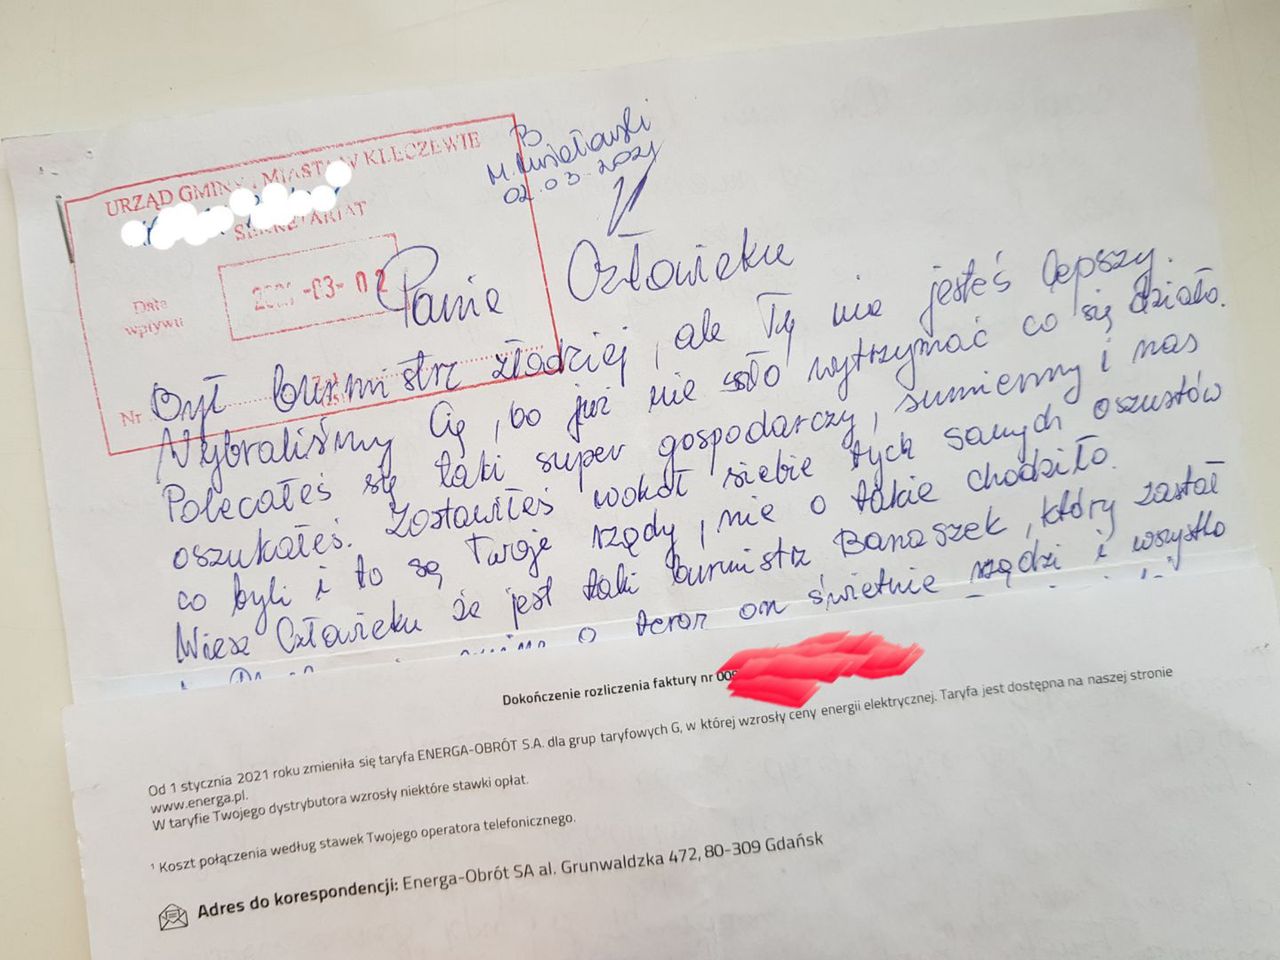 URZĄD GMINY I MIASTA W KLECZEWIE
SEKRETARIAT
Data
wpływu
-03-02
Nr
B
M.
02.03.2021
Panie Człowieku
Był burmistrz złodziej, ale Ty nie jesteś lepszy.
Wybraliśmy Cię, bo już nie szło wytrzymać co się działo.
Polecałeś się taki super gospodarczy, sumienny i nas
oszukałeś. Zostawiłeś wokół siebie tych samych oszustów
co byli i to są Twoje rządy, nie o takie chodziło.
Wiesz Człowieku że jest taki burmistrz Banaszek, który zastał
o teror on świetnie rządzi i wszystko
Dokończenie rozliczenia faktury nr 00
Od 1 stycznia 2021 roku zmieniła się taryfa ENERGA-OBRÓT S.A. dla grup taryfowych G, w której wzrosły ceny energii elektrycznej. Taryfa jest dostępna na naszej stronie
www.energa.pl.
W taryfie Twojego dystrybutora wzrosły niektóre stawki opłat.
¹ Koszt połączenia według stawek Twojego operatora telefonicznego.
Adres do korespondencji: Energa-Obrót SA al. Grunwaldzka 472, 80-309 Gdańsk